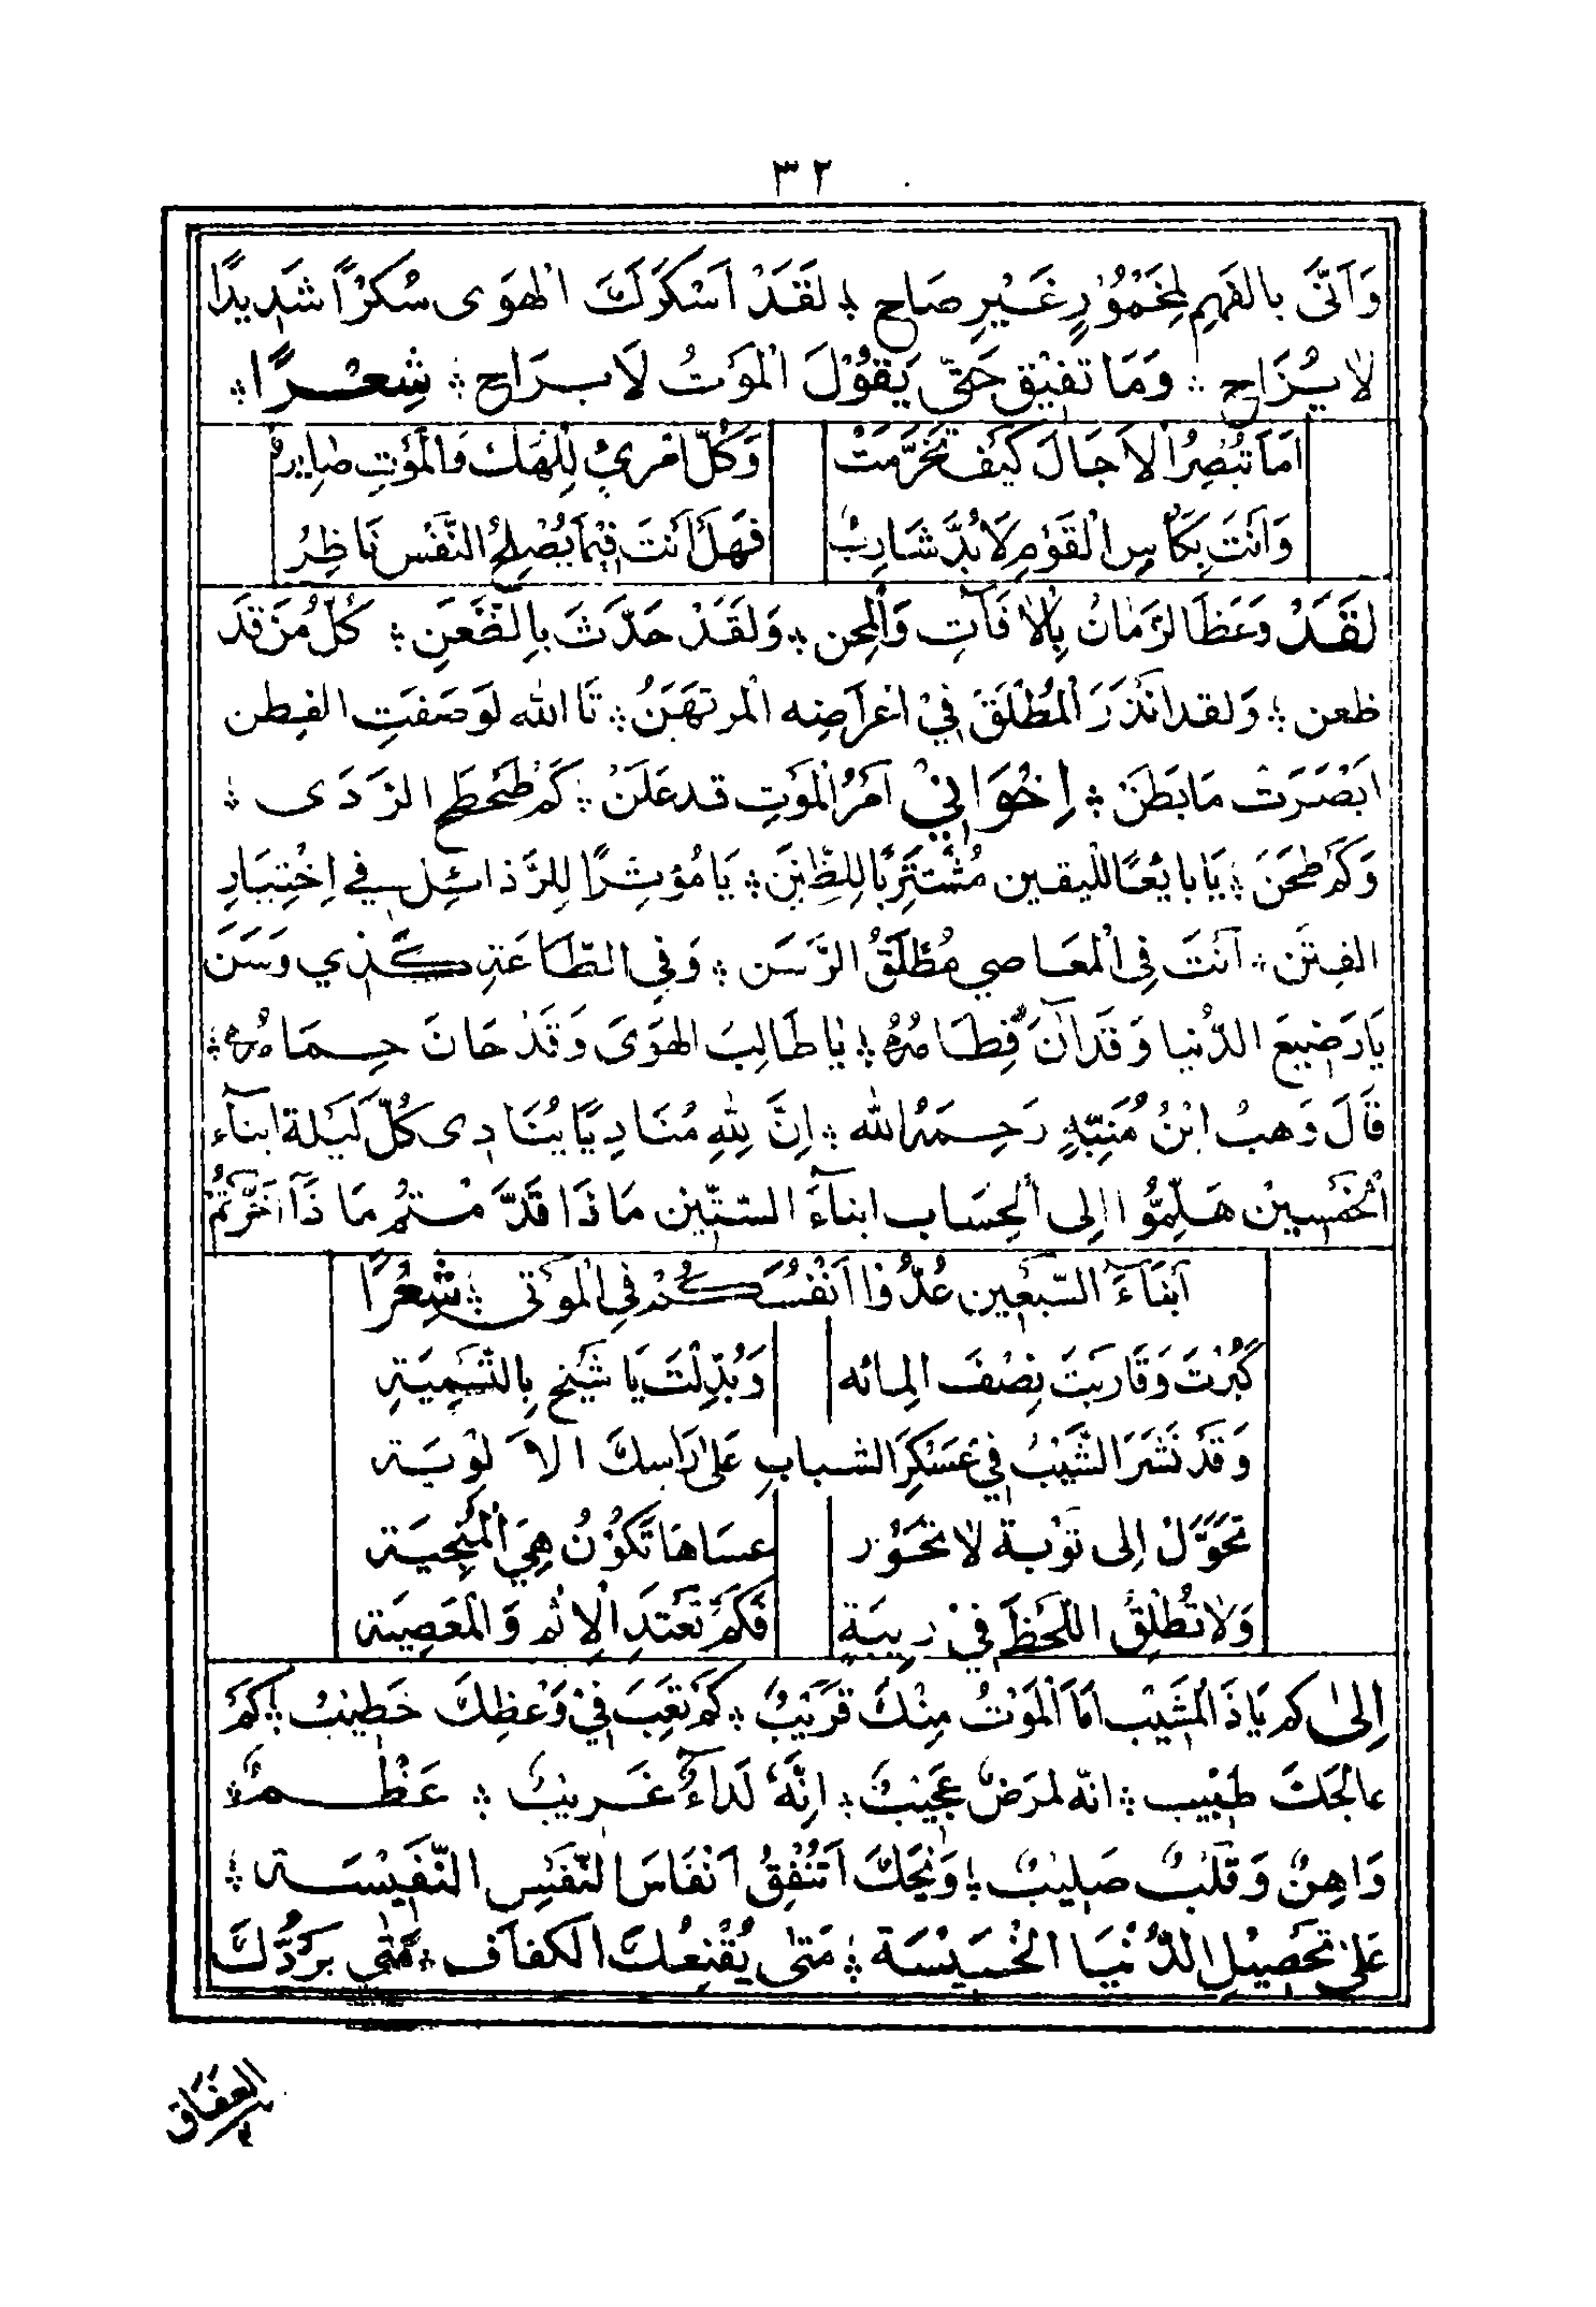 ٣٢
وَاَنّٰى بالفَهِم لِمَخْمُوْرٍ غَيْرِ صَاحٍ ؞ لَقَدْ اَسْكَرَكَ الْهوَى سُكرًا شَدِيدًا
لَا يُزَاح ؞ وَمَا تفيْق حَتّٰى يَقُوْلَ الْمَوْتُ لَا بـرَاح ؞ شِعْـرًا ؞
اَمَا تُبْصِرُ الْاٰجَالَ كَيْفَ تَخَرَّمَتْ وَكُلّ امْرِئٍ لِلْهُلْكِ وَالْمَوْتِ صَايِرُ
وَاَنْتَ بِكَاْسِ الْقَوْمِ لَابُدَّ شَارِبُ فَهَلْ اَنْتَ فِيْمَا يُصْلِحُ النَّفْس نَاظِرُ
لقَدْ وَعَظَ الزَمَانُ بِالْاٰفَاتِ وَالْمِحن ؞ وَلَقَدْ حَدَّثَ بِالظَّعَنِ ؞ كُلّ مَنْ قَدْ
ظعن ؞ وَلقد انْذَرَ الْمُطْلَقَ فِيْ اغْرَاضِه الْمرتهَنُ ؞ تَا الله لَو صَفَتِ الفِطن
ابْصَرَتْ مَابَطَنَ ؞ اِخْوَانِيْ اَمْرُ الْمَوْتِ قد عَلَنْ ؞ كَمْ طَحْطَحَ الرَّدَى ؞
وَكَمْ طَحَنَ ؞ يَا بايعًا لليقـين مُشْتَرِيًا لِلظَّنِّ ؞ يَا مُؤثِـرًا لِلرَّذائِـل فِي اِخْتِيَارِ
الفِتَن ؞ اَنْتَ فِى الْمعَـاصي مُطْلَقُ الرَّسَن ؞ وَفِي الطَّاعَةِ كَـذِي وَسَن
يَارَضِيعَ الدُّنيا وَقَد اٰنَ فِطَـامُهُ ؞ يٰا طَالِبَ الهَوٰى وَقَدْ حَانَ حِـمَامُهُ ؞
قَالَ وَهبُ ابْنُ مُنَبِّهٍ رَحِـمَهُ الله ؞ اِنَّ لِلّٰهِ مُنَادِيًا يُنَادِى كُلَّ لَيْلة ابنَآءَ
الْخَمْسِينْ هَـلِمُّوْا اِلى الْحِسَاب ابنآءَ السِتِّيْن مَا ذَا قَدَّ مْـتُمْ مَا ذَآ اَخَّرْتُمْ
اَبْنَآءَ السَّبْعِين عُدُّوْا اَنْفُسَـكُمْ فِى الْمَوْتى ؞ شِعْرًا
كَبُرْتَ وَقَارَبْتَ نِصْفَ الْمِائه وَبُدِّلْتَ يَا شَيْخ بِالتَّسْمِيَةِ
وَقَدْ نَشَرَ الشَّيْبُ فِي عَسْكَرِ الشباب عَلٰى رَاسِكَ الْاَ لْوِيَـة
تَحَوَّلْ اِلى تَوْبـة لَا تَحُوْر عسَاهَا تَكُوْنُ هِيَ الْمُنْجِيَـة
وَلَا تُطْلِقُ اللَّحْظَ فِيْ رِيبَةٍ فَكَمْ تَعْتَدِ الْاِثم وَالْمَعْصِيَة
اِلىٰ كم يَا ذَ الْمَشَيْب اَمَا الْمَوْتُ مِنْكَ قَرَيْبُ ؞ كَمْ تَعِبَ فِيْ وَعْظِكَ خَطِيبُ ؞ كَمْ
عالجَكَ طَبِيْب ؞ انّه لمرَضٌ عَجِيْبٌ ؞ اِنَّهُ لَدَاءٌ غَـرِيبٌ ؞ عَظْـمٌ ؞
وَاهِنٌ وَقَلْبٌ صَلِيبٌ ؞ وَيْحَكَ اَتُنْفِقُ اَنْفَاسَ النَّفْسِ النَّفِيْسَـة ؞
عَلى تَحْصِيْلِ الدُّنْيَـا الْخَسِيْسَة ؞ مَتٰى يُقْنِعُكَ الكفاَف ؞ مَتٰى يَرُدُّكَ
العفاف